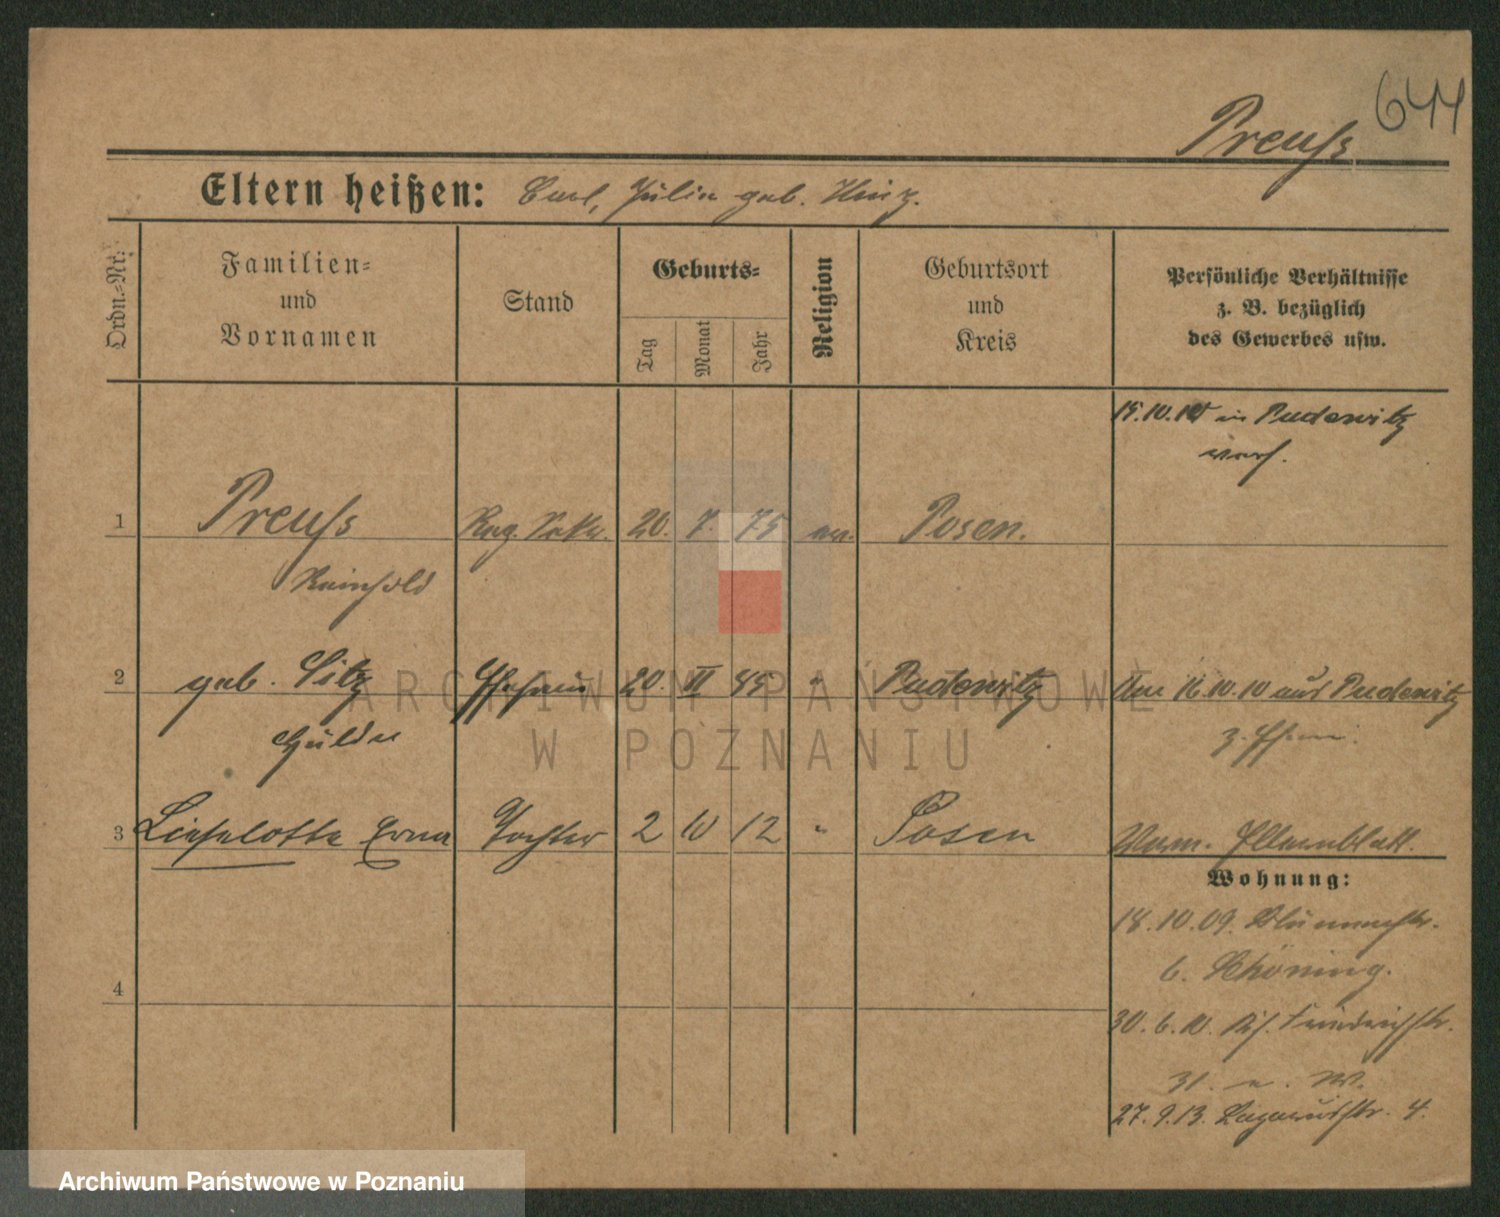 644
Preuß
Eltern heißen: Carl, Julie geb. Hinz.
Ordn.-Nr.
Familien-
und
Vornamen
Stand
Geburts-
Tag
Monat
Jahr
Religion
Geburtsort
und
Kreis
Persönliche Verhältnisse
z. B. bezüglich
des Gewerbes usw.
15.10.10 in Pudewitz
verh.
1 Preuß Reg. Sekr. 20. 7. 75 ev. Posen.
Reinhold
2 geb. Sitz Ehefrau 20. II " Pudewitz Am 16.10.10 aus Pudewitz
Hulda
z. Ehem.
3 Lieselotte Erna Tochter 2 10 12 " Posen
Elternblatt.
Wohnung:
18.10.09.
6. Schöning.
4
30.6.10. Friedrichstr.
31.
27.9.13. 4.
ARCHIWUM PAŃSTWOWE
W POZNANIU
Archiwum Państwowe w Poznaniu